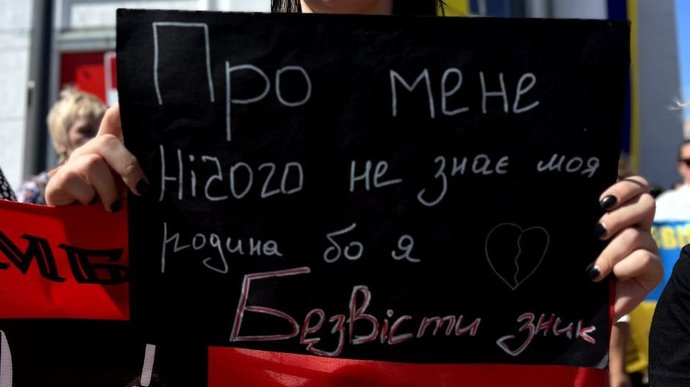 Про мене
нічого не знає моя
родина бо я
Безвісти зник
МБ